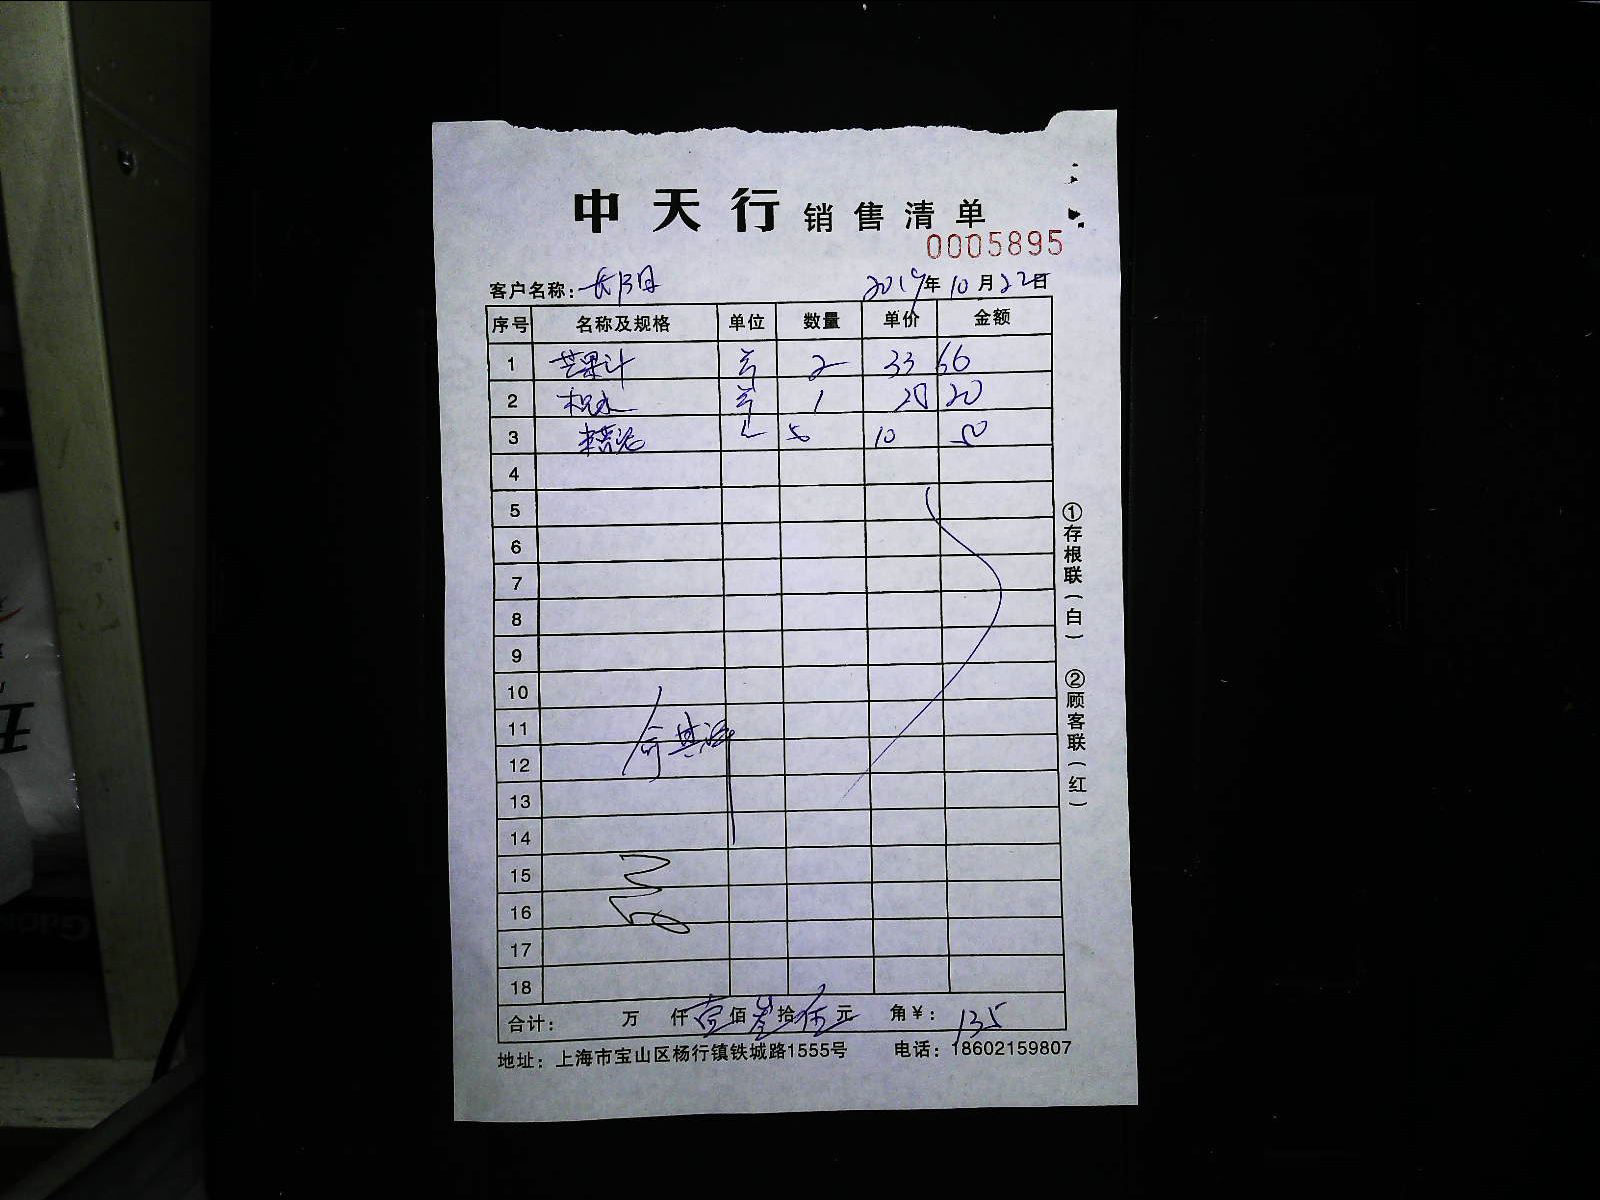 中天行 销售清单
0005895
客户名称： 2019年10月22日
序号 名称及规格 单位 数量 单价 金额
1 芒果汁 2 33 66
2 1 20 20
3 5 10 50
4
5
6
7
8
9
10
11
12
13
14
15
16
17
18
合计： 万 仟壹佰叁拾伍元 角￥：135
地址：上海市宝山区杨行镇铁城路1555号 电话：18602159807
①存根联（白） ②顾客联（红）